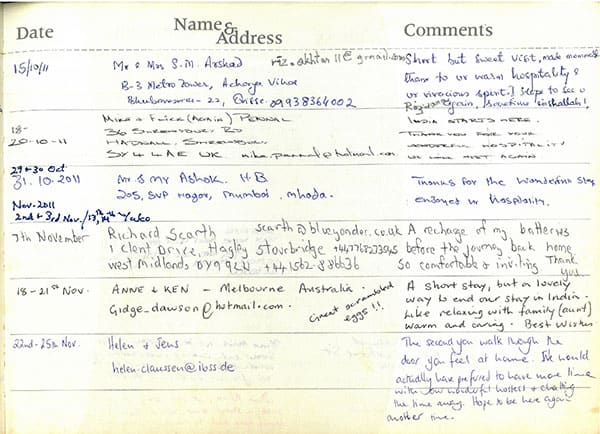 Date Name & Address Comments
15/10/11 Mr & Mrs S.M. Arshad
B-3 Metro Tower, Acharya Vihar
09938364002
Short but sweet visit, made
thanx to ur warm hospitality &
ur vivacious spirit! Hope to see u
again, sometime inshallah!
18-
20-10-11
36 Shrewsbury Rd
Hadnall, Shrewsbury
SY4 4AE UK.
India starts here.
Thank you for your
wonderful hospitality
we will meet again
29 + 30 Oct
31.10.2011
Nov-2011
2nd + 3rd Nov./
Mr. & Mr Ashok. H.B.
205, SVP Nagar, Mumbai. Mhada.
Thanks for the wonderful stay
enjoyed ur hospitality.
7th November Richard Scarth scarth@blueyonder.co.uk
1 Clent Drive, Hagley Stourbridge
West Midlands DY9 9LN
A recharge of my batteries
before the journey back home
So comfortable & inviting Thank
you
18 - 21st Nov. ANNE & KEN - Melbourne Australia.
Gidge_dawson@hotmail.com.
Great scrambled
eggs!!
A short stay, but a lovely
way to end our stay in India.
Like relaxing with family (aunt)
warm and caring. Best Wishes
22nd - 25th Nov. Helen & Jens
helen.claussen@ibss.de
The second you walk though the
door you feel at home. We would
actually have prefered to have more time
with our wonderful hosters & chatting
the time away. Hope to be here again
another time.